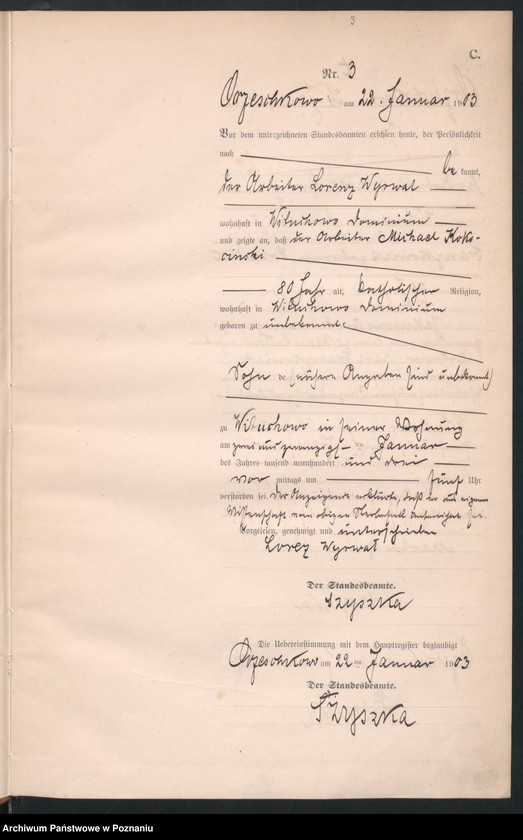 3
C.
Nr. 3
Orzeschkowo am 22. Januar 1903
Vor dem unterzeichneten Standesbeamten erschien heute, der Persönlichkeit
nach
be kannt,
der Arbeiter Lorenz Wyrwal
wohnhaft in Witnchowo Dominium
und zeigte an, daß der Arbeiter Michael Koko-
cinski
80 Jahr alt, katholischer Religion,
wohnhaft in Dominium
geboren zu unbekannt
Sohn de (nähere Angaben sind unbekannt)
zu in seiner Wohnung
am zwei und zwanzigst- ten Januar
des Jahres tausend neunhundert und drei
vor mittags um fünf Uhr
verstorben sei. Der Anzeigende erklärte, daß er aus eigener
Wissenschaft vom obigen Sterbefall unterrichtet sei.
Vorgelesen, genehmigt und unterschrieben
Lorez Wyrwał
Der Standesbeamte.
Szyszka
Die Uebereinstimmung mit dem Hauptregister beglaubigt
Orzeschkowo am 22 ten Januar 1903
Der Standesbeamte.
Szyszka
Archiwum Państwowe w Poznaniu